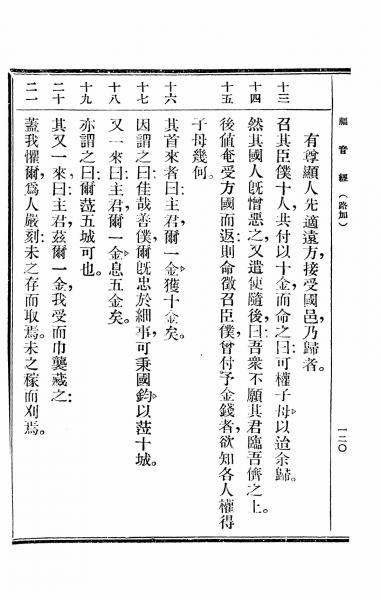 福音經（路加）
一二〇
有尊顯人先適遠方、接受國邑、乃歸者。
十三 召其臣僕十人、共付以十金而命之曰、可權子母以迨余歸。
十四 然其國人旣憎惡之、又遣使隨後曰、吾衆不願其君臨吾儕之上。
十五 後値奄受方國而返、則命徵召臣僕、曾付予金錢者、欲知各人權得
子母幾何。
十六 其首來者曰、主君、爾一金獲十金矣。
十七 因謂之曰、佳哉善僕、爾旣忠於細事、可秉國鈞、以莅十城。
十八 又一來曰、主君、爾一金息五金矣。
十九 亦謂之曰、爾莅五城可也。
二十 其又一來曰、主君、茲爾一金、我受而巾襲藏之、
二一 蓋我懼爾爲人嚴刻、未之存而取焉、未之稼而刈焉。